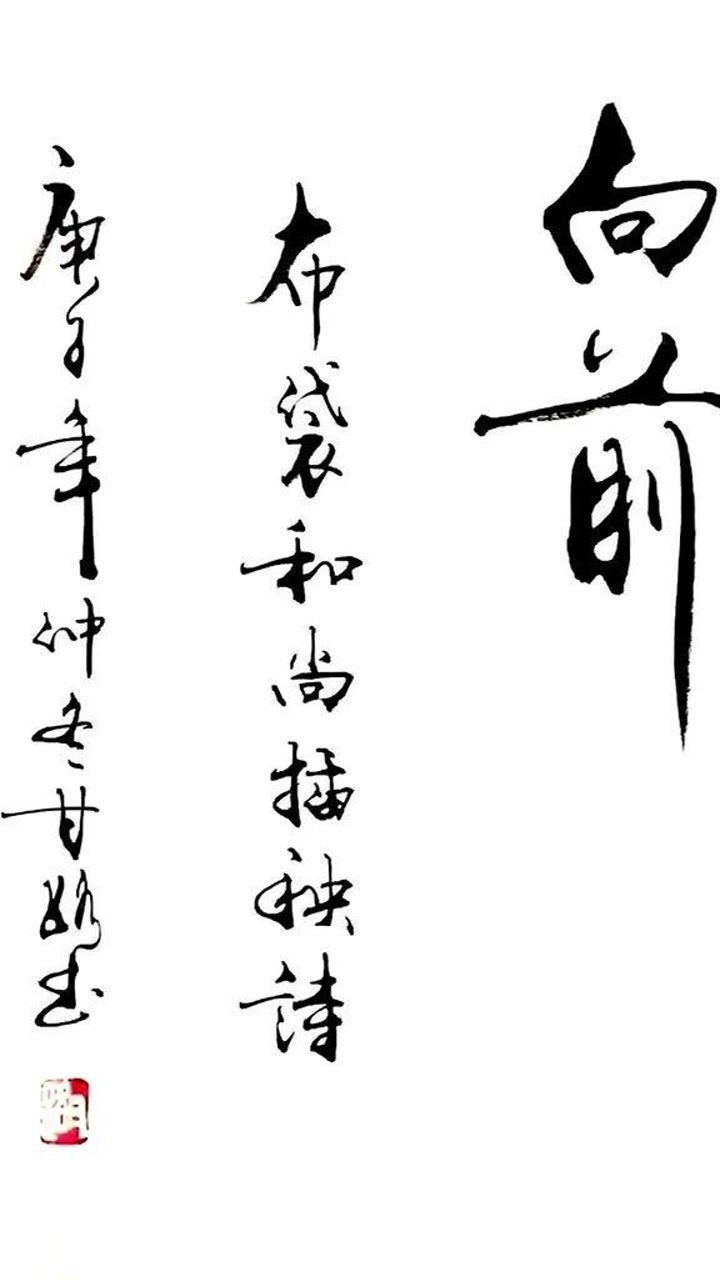 向前
布袋和尚插秧詩
庚子年仲冬甘路书